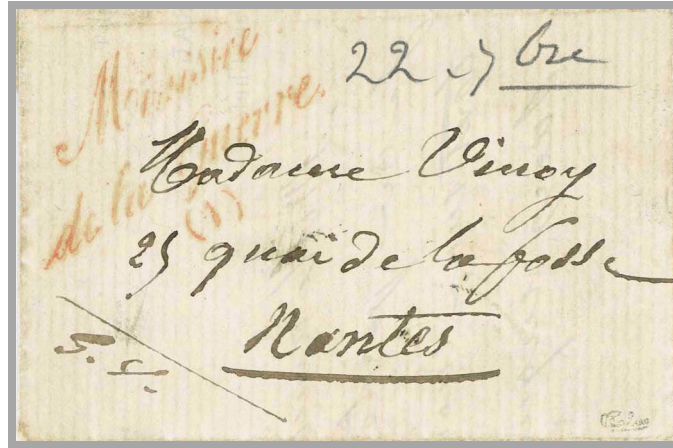 Ministre
de la Guerre.
(1)
22 7bre
Madame Vinoy
25 quai de la fosse
Nantes